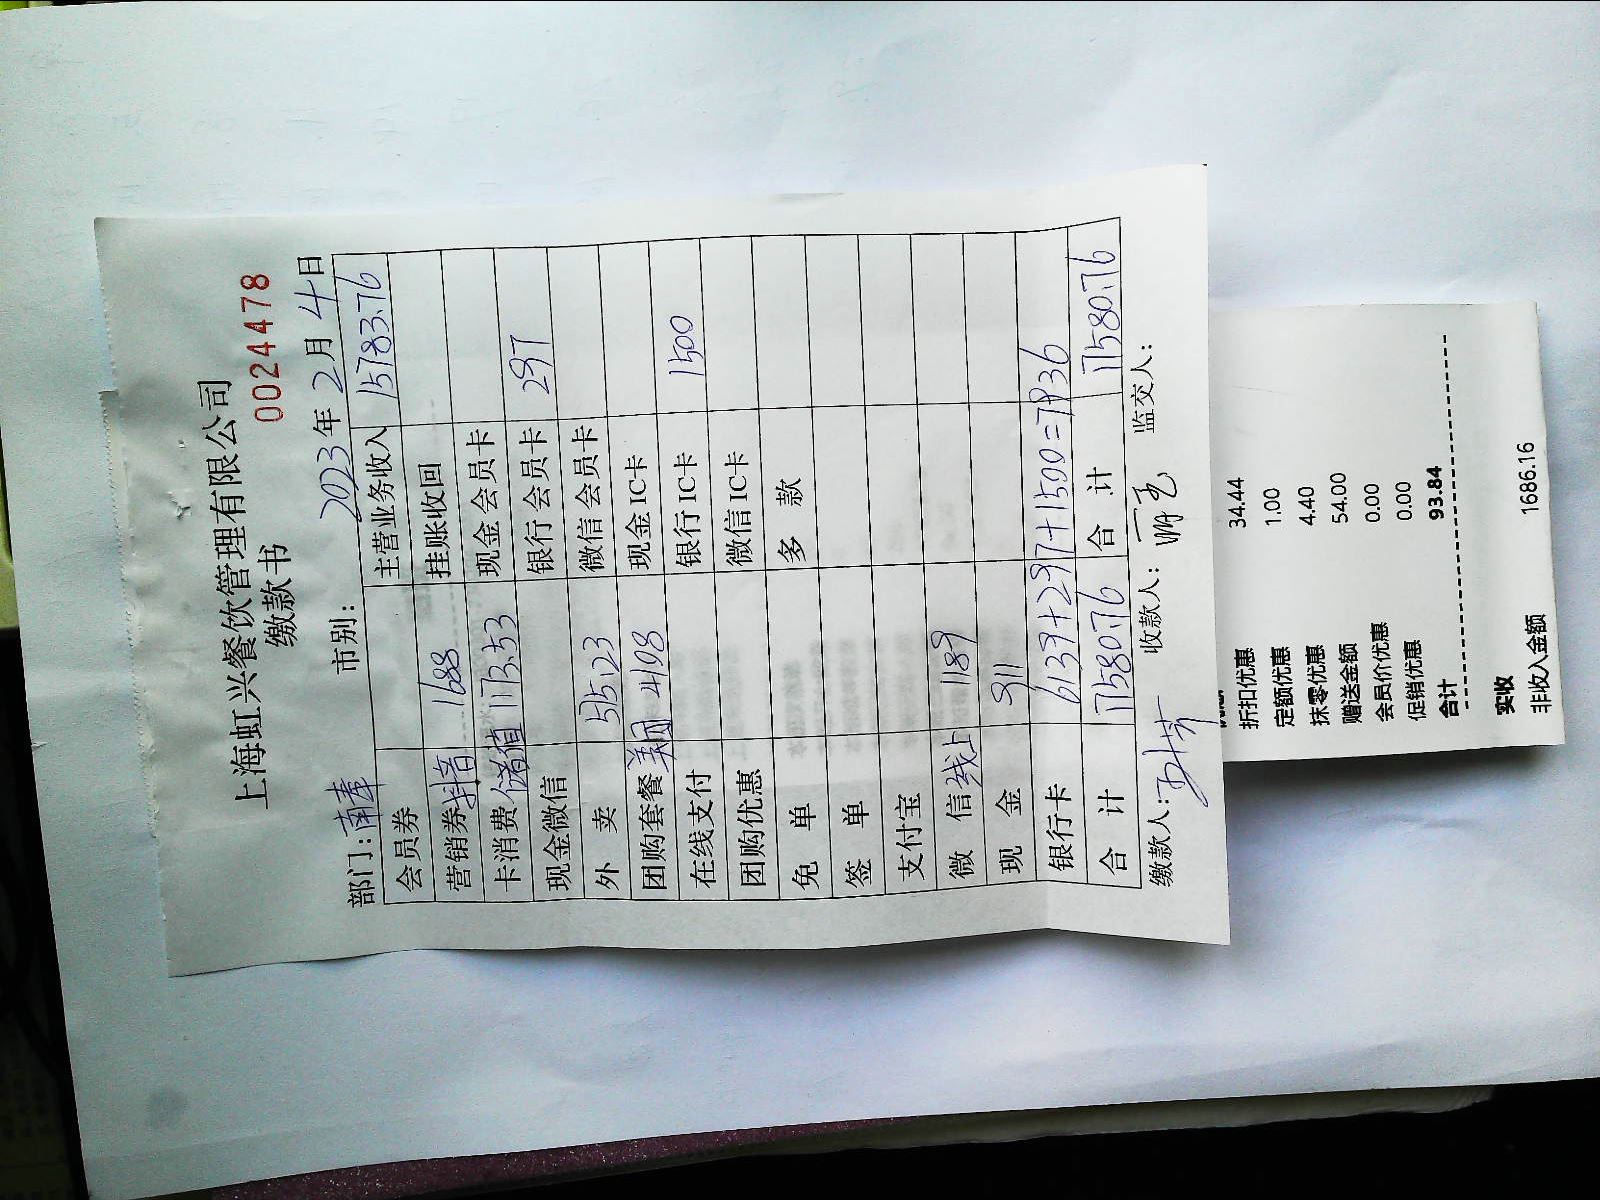 上海虹兴餐饮管理有限公司
缴款书
0024478
部门：南奉 市别： 2023年2月4日
会员券 主营业务收入 15783.76
营销券 抖音 1688 挂账收回
卡消费 储值 1743.53 现金会员卡
现金微信 银行会员卡 297
外卖 515.23 微信会员卡
团购套餐 美团 4198 现金IC卡
在线支付 银行IC卡 1500
团购优惠 微信IC卡
免单 多款
签单
支付宝
微信 线上 1189
现金 311
银行卡 6139+297+1500=7936
合计 17580.76 合计 17580.76
缴款人： 收款人： 监交人：
折扣优惠 34.44
定额优惠 1.00
抹零优惠 4.40
赠送金额 54.00
会员价优惠 0.00
促销优惠 0.00
合计 93.84
实收
非收入金额 1686.16